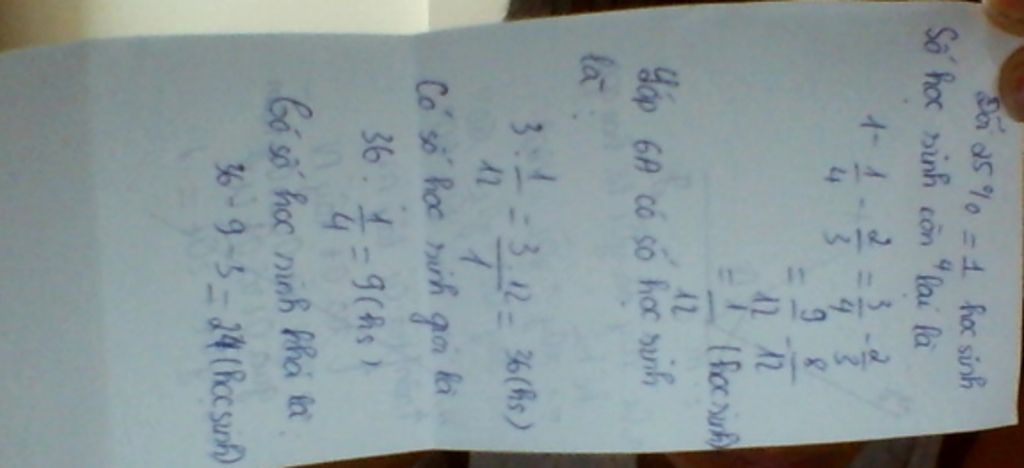 Đổi 25% = 1/4 học sinh
Số học sinh còn lại là
1 - 1/4 - 2/3 = 3/4 - 2/3
= 9/12 - 8/12
= 1/12 (học sinh)
Lớp 6A có số học sinh
là :
3 : 1/12 = 3.12/1 = 36 (hs)
Có số học sinh giỏi là
36 . 1/4 = 9 (hs)
Có số học sinh khá là :
36 - 9 - 3 = 24 (học sinh)